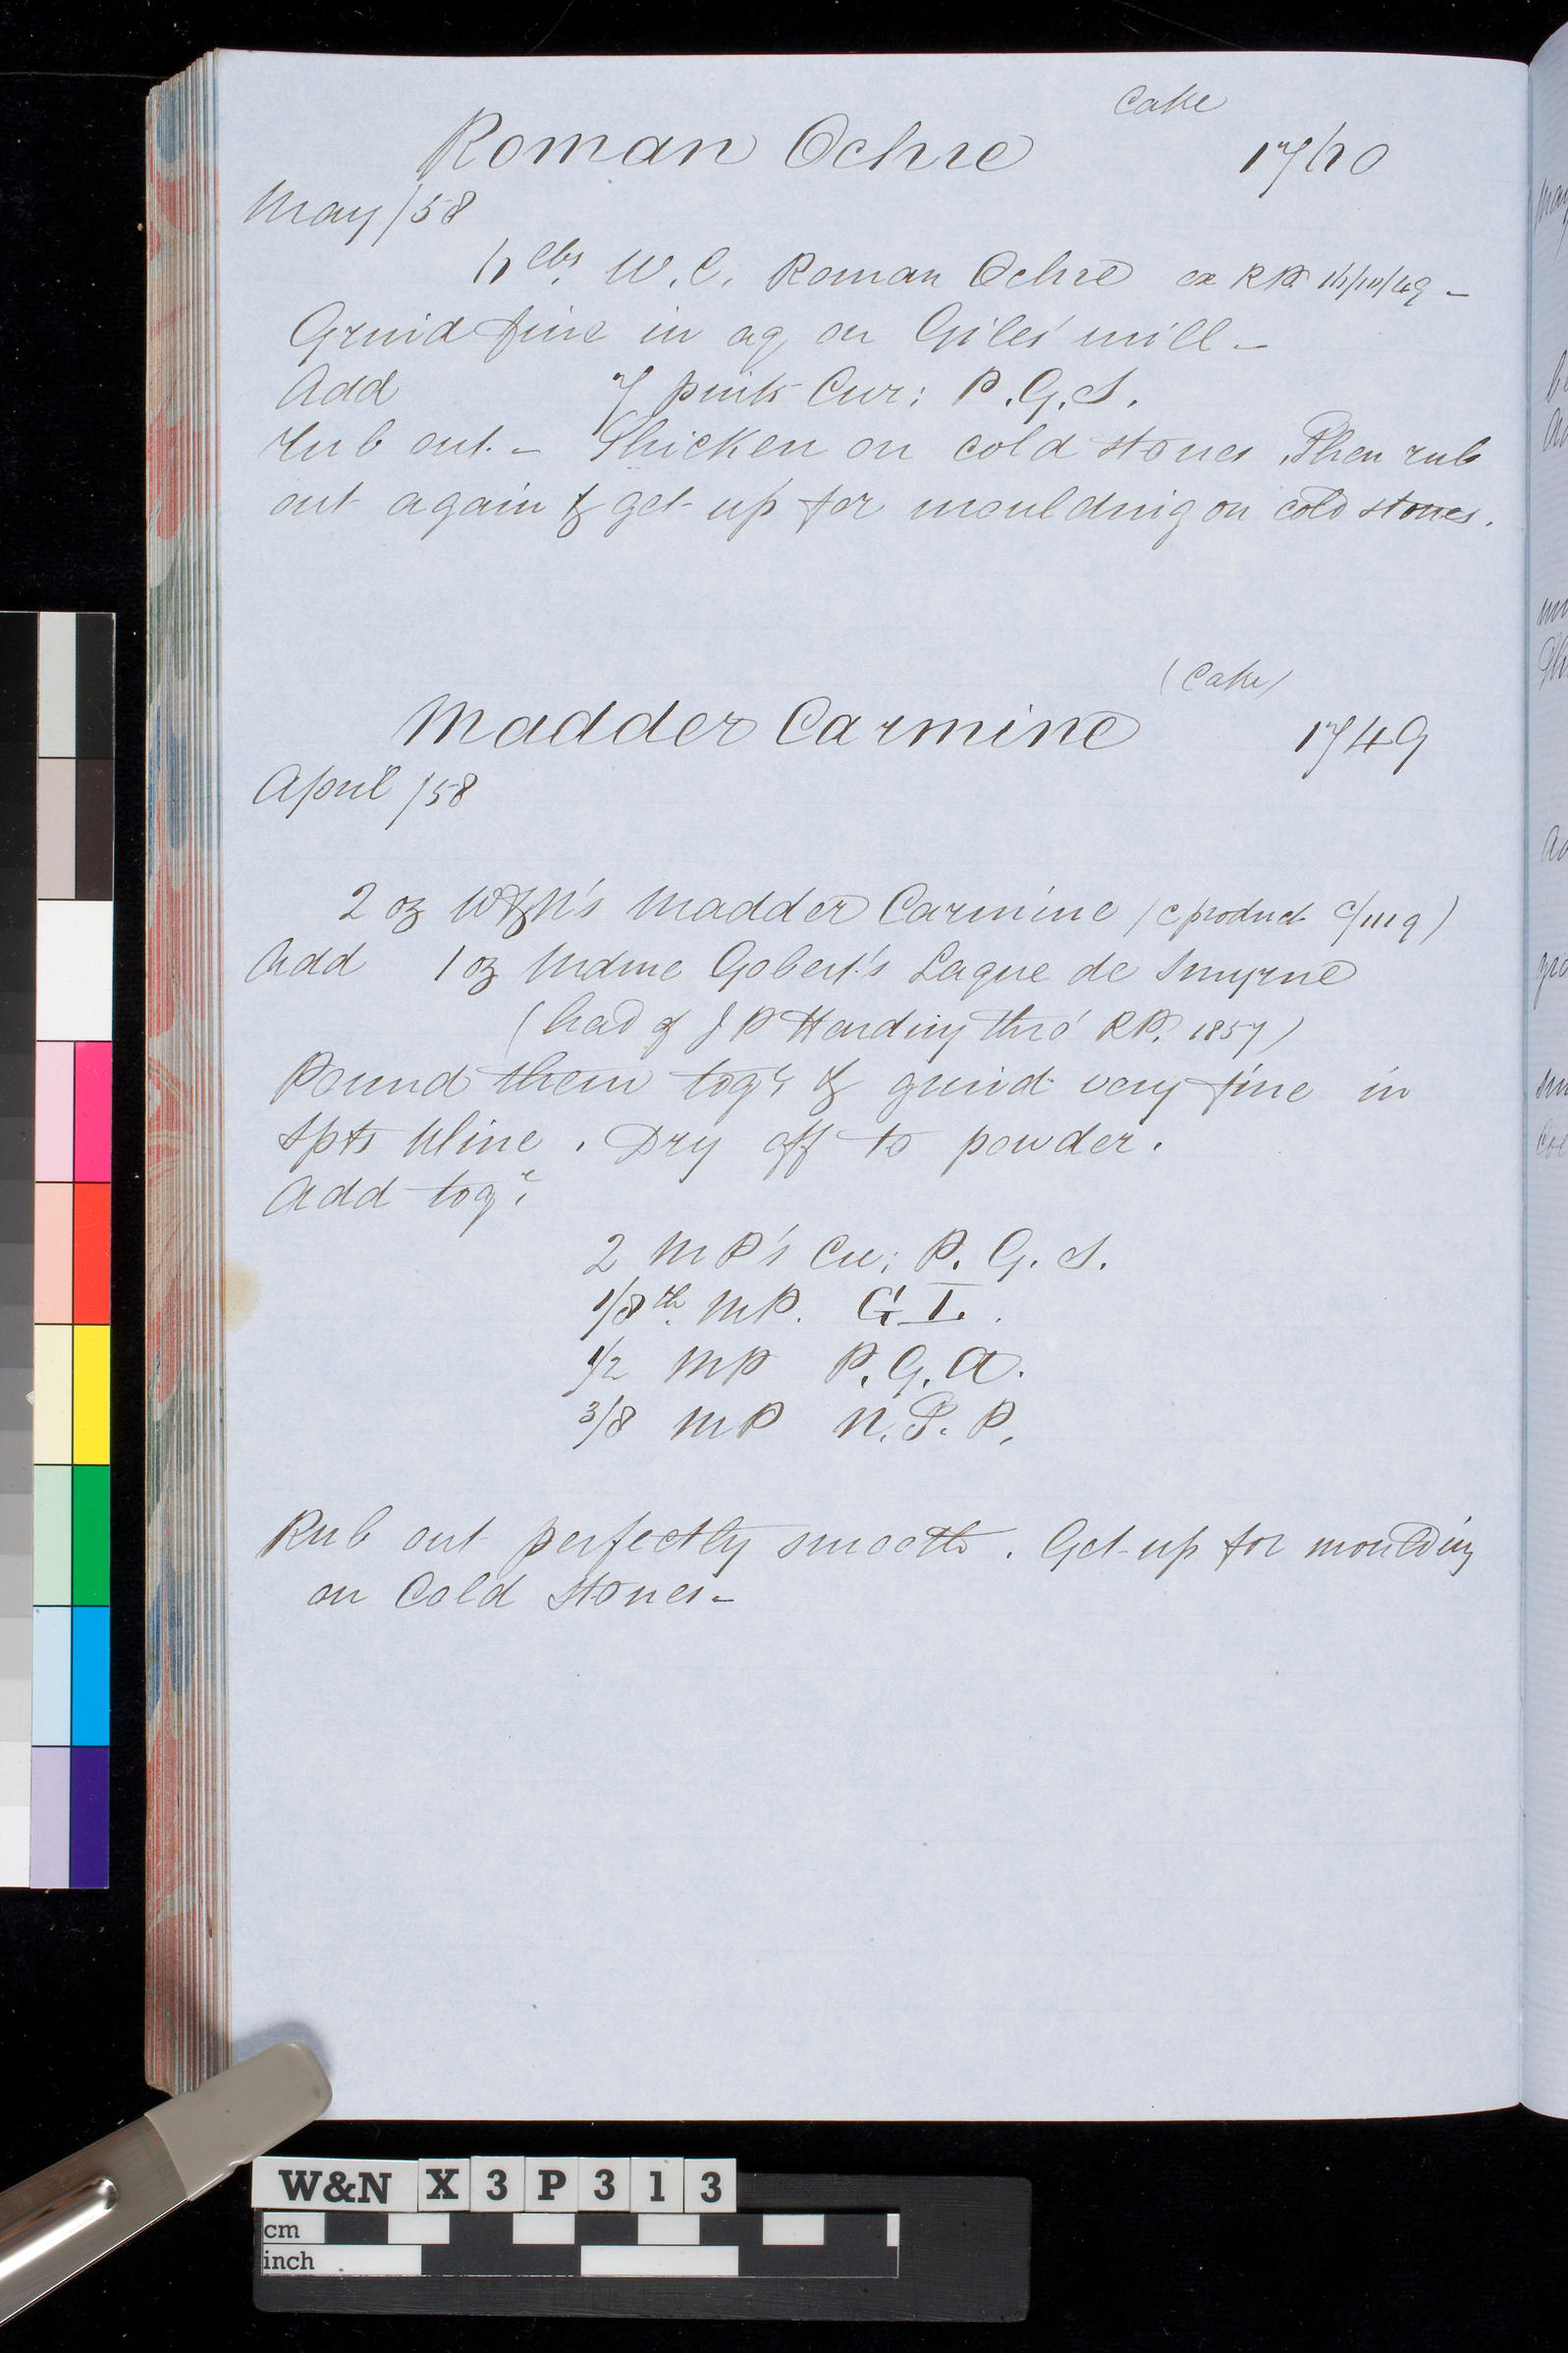 Cake
Roman Ochre 17/10
May/58
lbs W.C. Roman Ochre ex RP
Grind fine in aq on Giles' mill -
Add 7 pints Cur: P.G.S.
rub out. - Thicken on cold stones. Then rub
out again & get up for moulding on cold stones.
(Cake)
Madder Carmine 1749
April /58
2 oz W&N's Madder Carmine (c product c/1119)
Add 1 oz Mdme Gobert's Laque de Smyrne
(had of J P Harding thro' RP. 1857)
Pound them togr. & grind very fine in
Spts Wine. Dry off to powder.
Add togr.
2 MP's Cu: P.G.S.
1/8th MP. G I.
1/2 MP P.G.A.
3/8 MP N.T.P.
Rub out perfectly smooth. Get up for moulding
on Cold Stones -
W&N X3P313
cm
inch